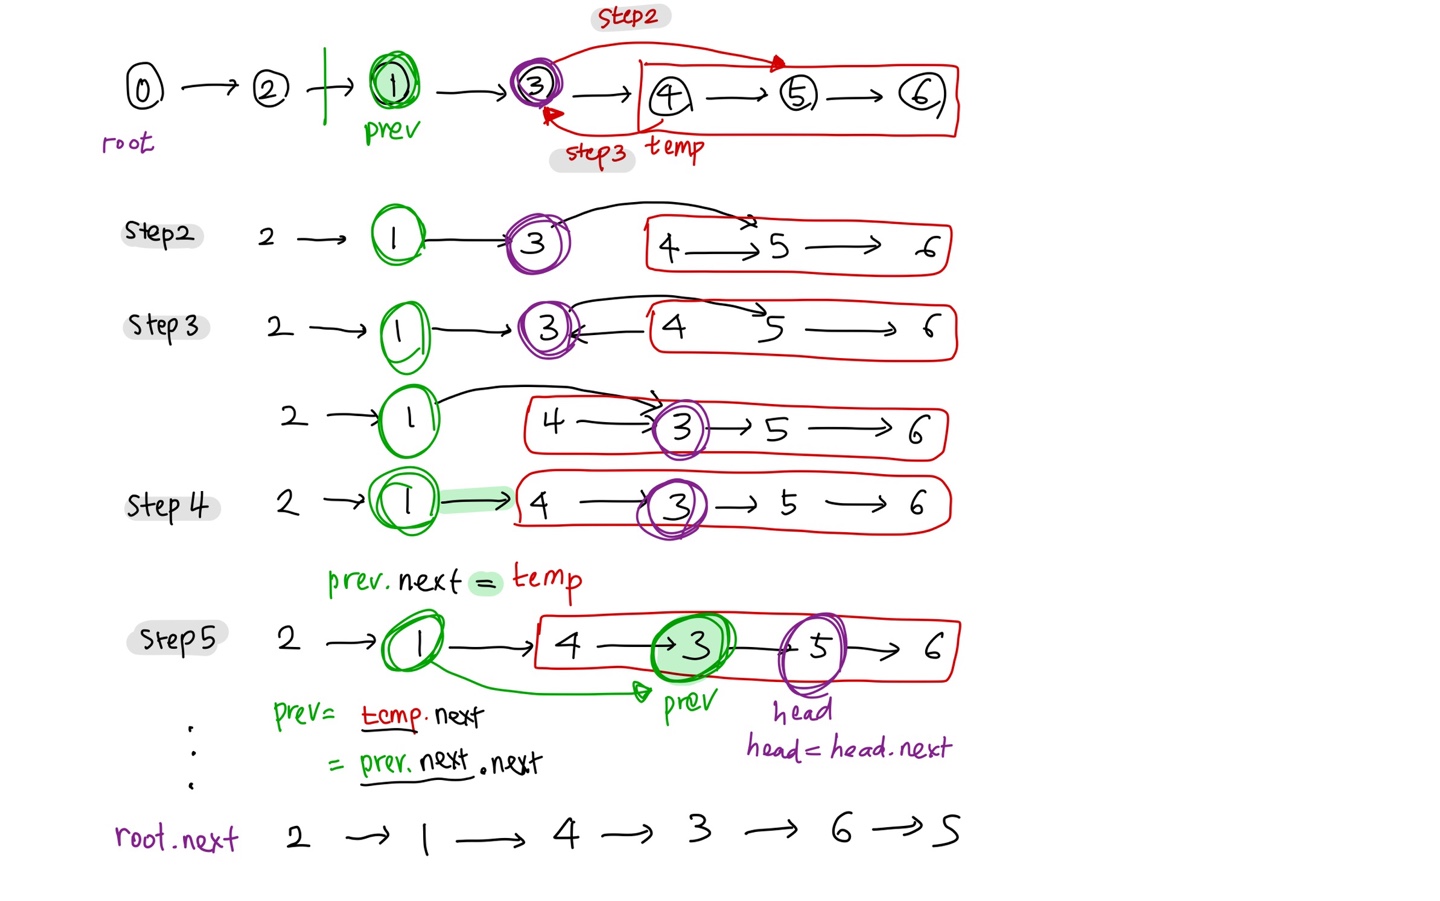 Step2
0 → 2 → 1 → 3 → 4 → 5 → 6
root prev step3 temp
Step2 2 → 1 → 3 4 → 5 → 6
Step 3 2 → 1 → 3 ← 4 5 → 6
2 → 1 4 → 3 → 5 → 6
Step 4 2 → 1 → 4 → 3 → 5 → 6
prev.next = temp
Step5 2 → 1 → 4 → 3 → 5 → 6
prev head
prev= temp.next
head = head.next
= prev.next.next
root.next 2 → 1 → 4 → 3 → 6 → 5